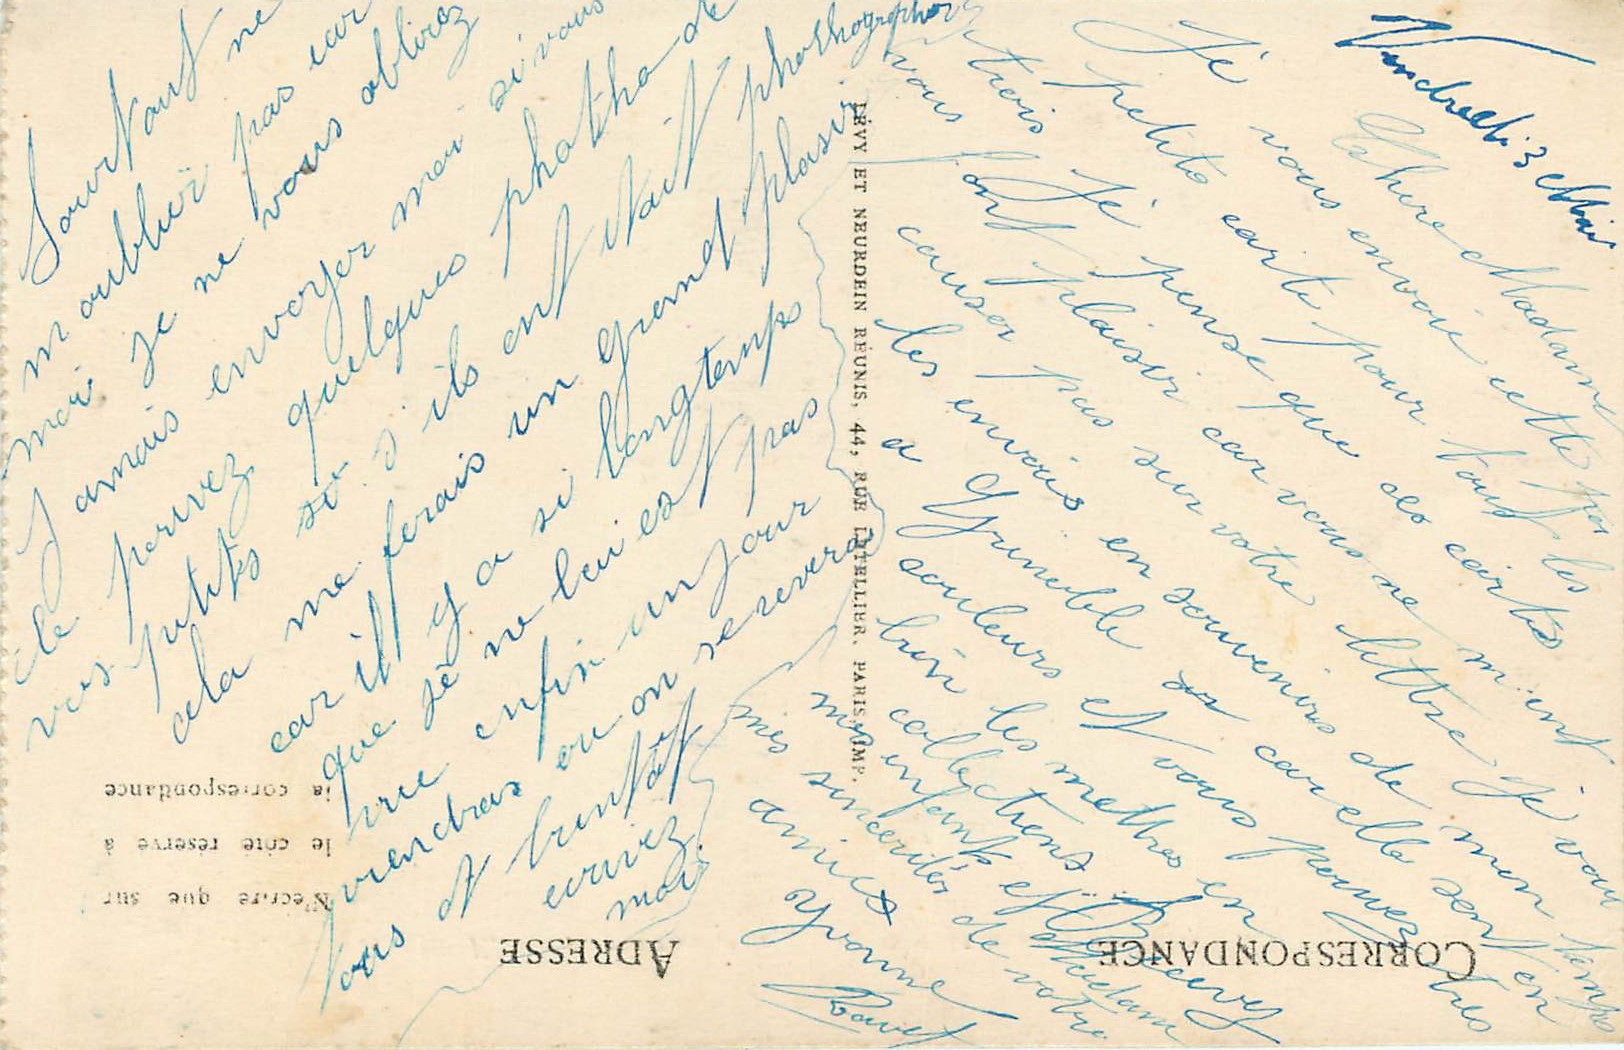 Vendredi 3 Mai
Chère Madame
Je vous envoie cette
petite carte pour tous les
trois Je pense que ces cartes
vous font plaisir car vous ne m'ent
causer pas sur votre lettre Je vous
les envois en souvenirs de mon temps
a Grinoble car elle sent en
couleurs et vous pouvez très
bien les mettres en
collections Recevez
mes infants et Madame
mes sincerités de votre
amies
Yvonne
Ravet
Sourtout ne
m oubluï pas car
moi Je ne vous oblirez
J amais envoyer moi si vous
le pouvez quelques photho de
vos petits si s ils ont était phothographier
cela me ferais un grand plaisir
car il y a si longtemps
que Je ne lai est pas
vue enfin un Jour
viendras ou on se revera
tous et bientôt
ecrivez
moi
LÉVY ET NEURDEIN RÉUNIS, 44, RUE LETELLIER, PARIS IMP.
CORRESPONDANCE
ADRESSE
N'écrire que sur
le côté réservé à
la correspondance